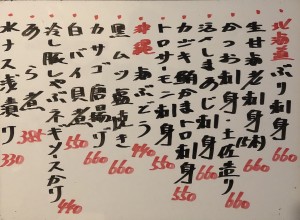 北海道 ぶり刺身 660
生甘海老刺身 660
かつお刺身・土佐造り 660
活〆しまあじ刺身 660
カジキ鮪かまトロ刺身 550
トロサーモン刺身 550
沖縄 海ぶどう 440
黒ムツ塩焼き 660
カサゴ唐揚げ 660
白バイ貝煮 550
冷し豚しゃぶネギポンスがけ 440
あら煮
水ナス浅漬け 330